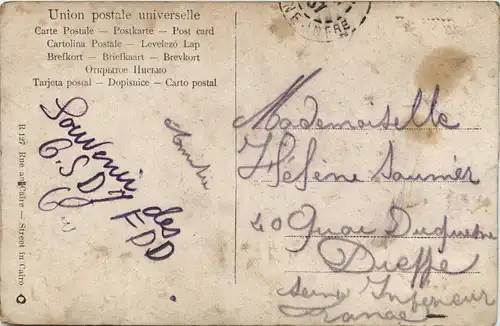 Union postale universelle
Carte Postale — Postkarte — Post card
Cartolina Postale — Levelező Lap
Brefkort — Briefkaart — Brevkort
Открытое Письмо
Tarjeta postal — Dopisnice — Carto postal
Souvenir des
6.S.D.
FDD
Amélie
Mademoiselle
Hélène Saunier
40 Quai Duquesne
Dieppe
Seine Inférieure
France
R 127 Rue au Caire — Street in Cairo